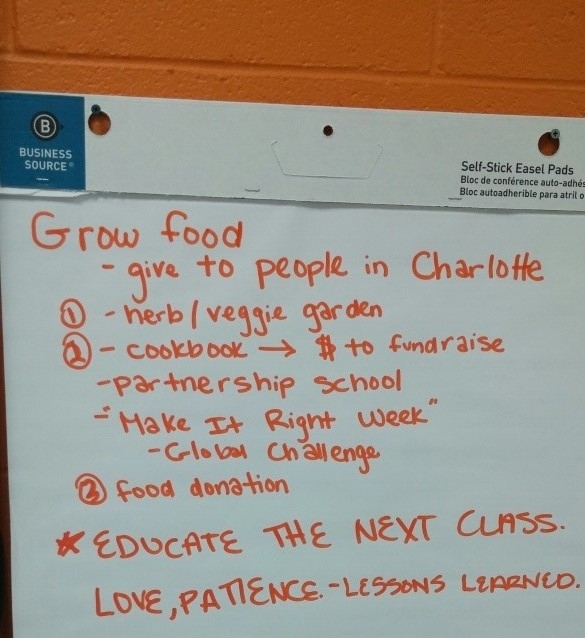 B
BUSINESS
SOURCE®
Self-Stick Easel Pads
Bloc de conférence auto-adhés
Bloc autoadherible para atril o
Grow food
- give to people in Charlotte
① - herb/veggie garden
② - cookbook → $ to fundraise
- partnership school
- "Make It Right Week"
- Global Challenge
③ food donation
* EDUCATE THE NEXT CLASS.
LOVE, PATIENCE. - LESSONS LEARNED.